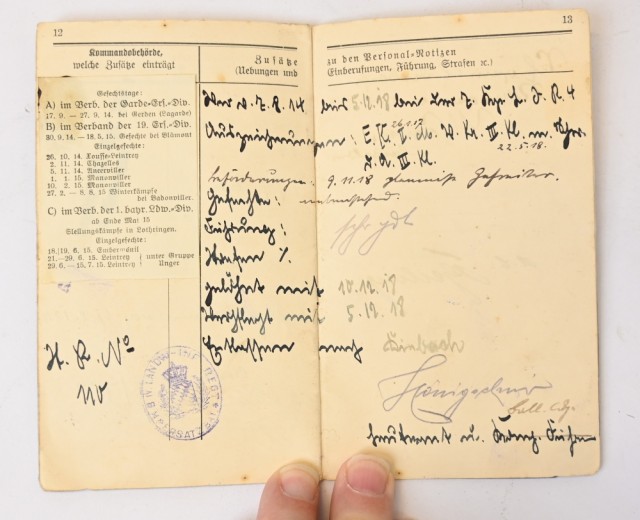 12
Kommandobehörde,
welche Zusätze einträgt
Zusätze
(Uebungen und
Gefechtstage:
A) im Verb. der Garde-Ers.-Div.
17. 9. — 27. 9. 14. bei Gerden (Lagarde)
B) im Verband der 19. Ers.-Div.
30. 9. 14. — 18. 5. 15. Gefechte bei Blâmont
Einzelgefechte:
26. 10. 14. Louffe-Leintrey
2. 11. 14. Chazelles
5. 11. 14. Ancerviller
1. 1. 15. Manonviller
10. 2. 15. Manonviller
27. 2. — 8. 8. 15 Winterkämpfe
bei Badonviller.
C) im Verb. der 1. bayr. Ldw.-Div.
ab Ende Mai 15
Stellungskämpfe in Lothringen.
Einzelgefechte:
18./19. 6. 15. Embermenil
21.—29. 6. 15. Leintrey
29. 6. — 15. 7. 15. Leintrey
unter Gruppe
Unger
H. R. No
110
13
zu den Personal-Notizen
Einberufungen, Führung, Strafen ec.)
War v. 7. 8. 14 bis 5.12.18 bei der 7. L. J. R. 4
Auszeichnungen: E. K. II. Kl. III. Kl. m. Schw.
22.5.18.
III. Kl.
Beförderungen: 9.11.18 Gefreiter.
Gefechte: nebenstehend.
Führung: sehr gut
Strafen %.
gelöhnt mit 10.12.18
Verpflegt mit 5.12.18
Entlassen nach
Leutnant u. Komp. Führer